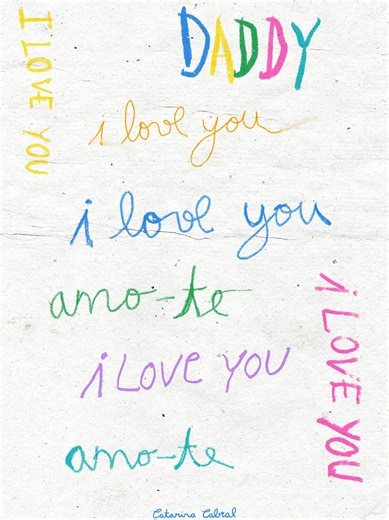 I LOVE YOU
DADDY
i love you
i love you
amo-te
i LOVE YOU
i LOVE YOU
amo-te
Catarina Cabral